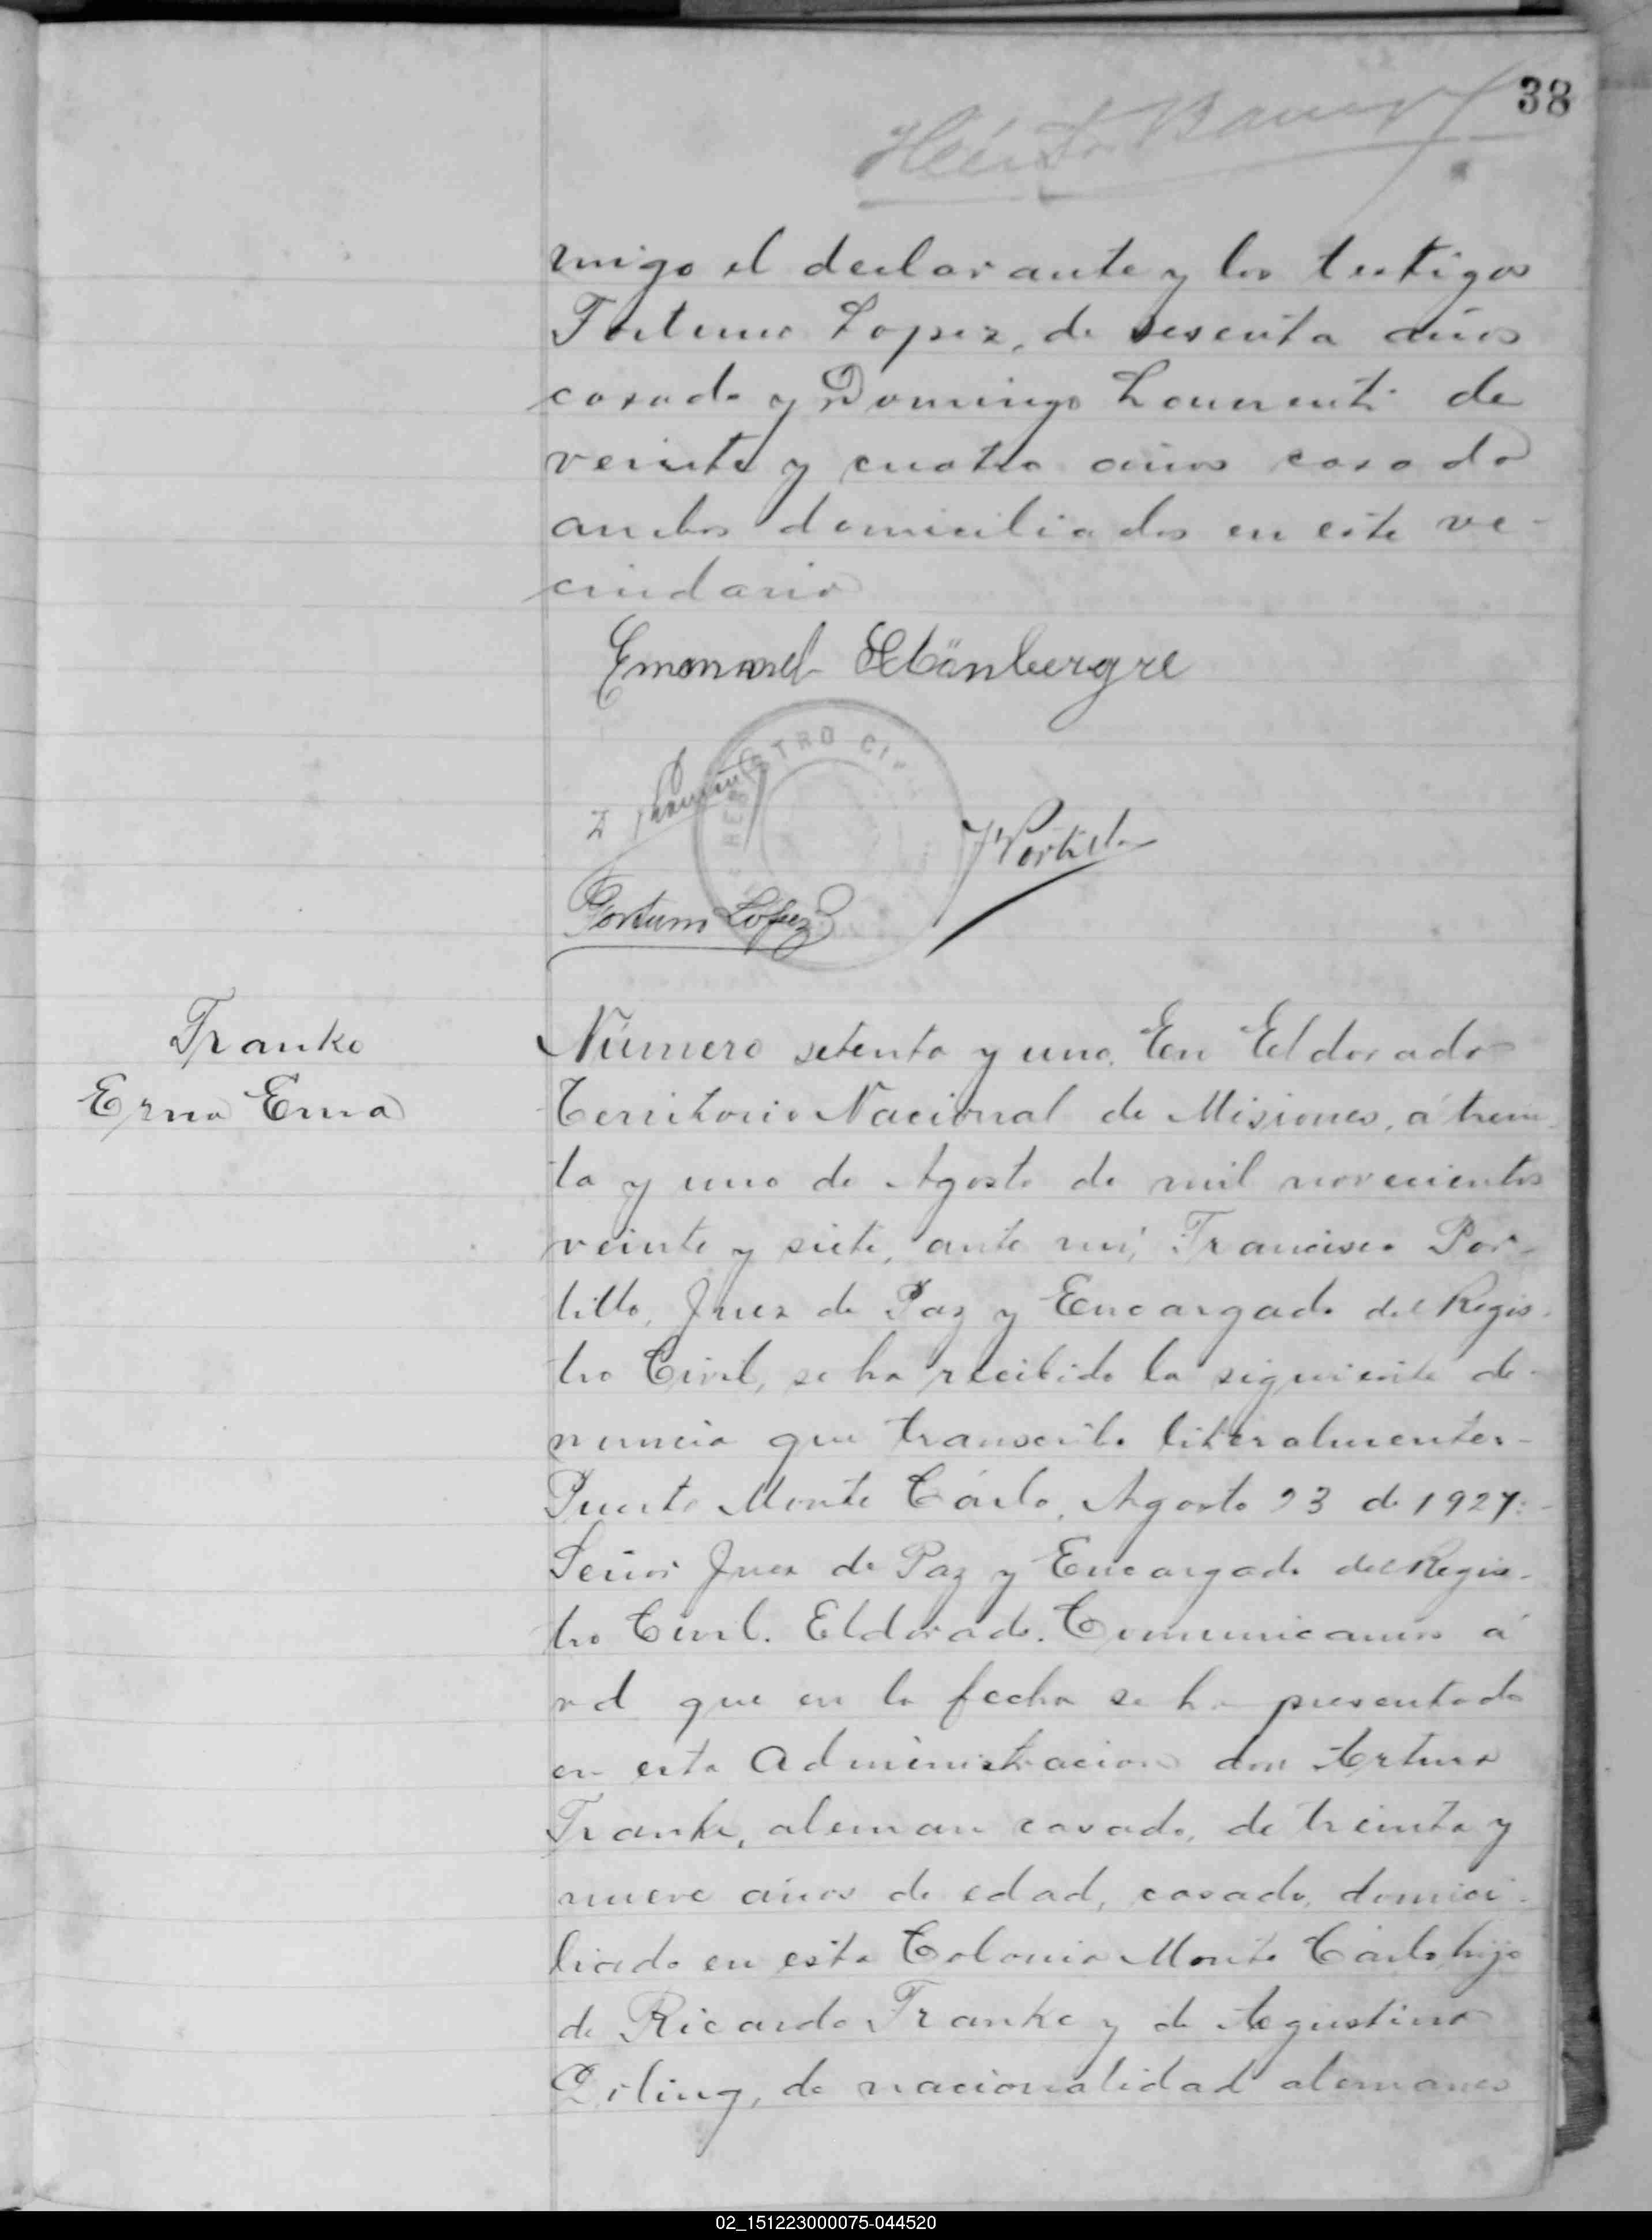 38
migo el declarante y los testigos
Fortuno Lopez, de sesenta años
casado y Domingo de
veinte y cuatro años casado
ambos domiciliados en este ve-
cindario
Emanuel
REGISTRO CIVIL
FPortillo
Fortuno Lopez
Franke
Erna Ema
Número setenta y uno. En Eldorado
Territorio Nacional de Misiones, á trein-
ta y uno de Agosto de mil novecientos
veinte y siete, ante mí, Francisco Por-
tillo, Juez de Paz y Encargado del Regis-
tro Civil, se ha recibido la siguiente de-
nuncia que transcribo literalmente:-
Puerto Monte Cárlo, Agosto 23 de 1927:-
Señor Juez de Paz y Encargado del Regis-
tro Civil. Eldorado. Comunicamos á
vd que en la fecha se ha presentado
en esta Administracion don Arturo
Franke, aleman casado, de treinta y
nueve años de edad, casado, domici-
liado en esta Colonia Monte Cárlo, hijo
de Ricardo Franke y de Agustina
de nacionalidad alemanes
02_151223000075-044520